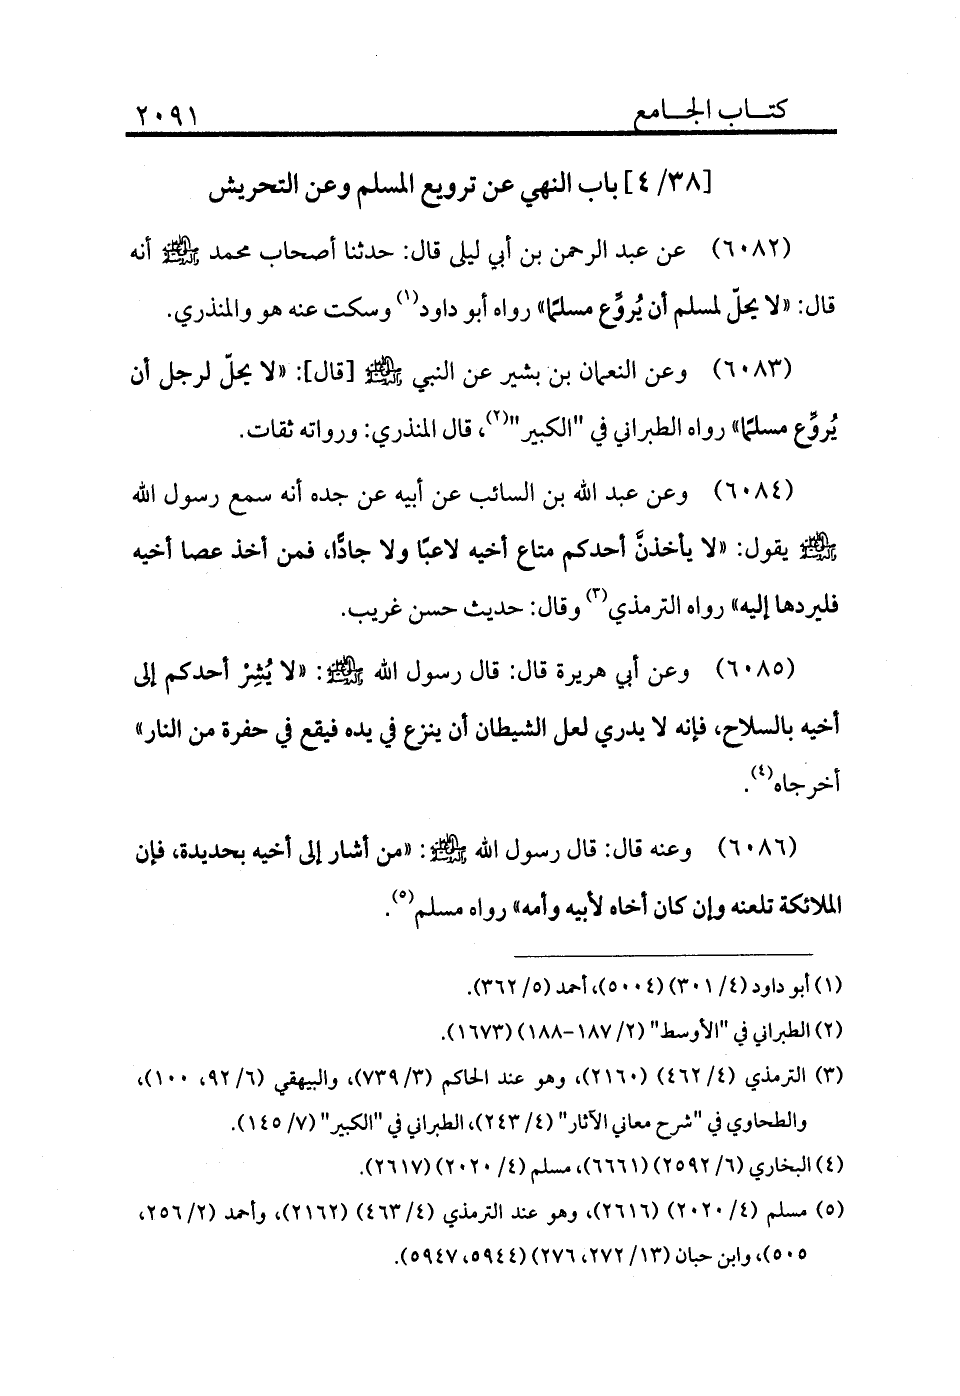 كتاب الجامع ٢٠٩١
[٤/٣٨] باب النهي عن ترويع المسلم وعن التحريش
(٦٠٨٢) عن عبد الرحمن بن أبي ليلى قال: حدثنا أصحاب محمد ﷺ أنه
قال: «لا يحلّ لمسلم أن يُروِّع مسلمًا» رواه أبو داود(١) وسكت عنه هو والمنذري.
(٦٠٨٣) وعن النعمان بن بشير عن النبي ﷺ [قال]: «لا يحلّ لرجل أن
يُروِّع مسلمًا» رواه الطبراني في "الكبير"(٢)، قال المنذري: ورواته ثقات.
(٦٠٨٤) وعن عبد الله بن السائب عن أبيه عن جده أنه سمع رسول الله
ﷺ يقول: «لا يأخذنَّ أحدكم متاع أخيه لاعبًا ولا جادًّا، فمن أخذ عصا أخيه
فليردها إليه» رواه الترمذي(٣) وقال: حديث حسن غريب.
(٦٠٨٥) وعن أبي هريرة قال: قال رسول الله ﷺ: «لا يُشِرْ أحدكم إلى
أخيه بالسلاح، فإنه لا يدري لعل الشيطان أن ينزع في يده فيقع في حفرة من النار»
أخرجاه(٤).
(٦٠٨٦) وعنه قال: قال رسول الله ﷺ: «من أشار إلى أخيه بحديدة، فإن
الملائكة تلعنه وإن كان أخاه لأبيه وأمه» رواه مسلم(٥).
(١) أبو داود (٤/ ٣٠١) (٥٠٠٤)، أحمد (٥/ ٣٦٢).
(٢) الطبراني في "الأوسط" (٢/ ١٨٧-١٨٨) (١٦٧٣).
(٣) الترمذي (٤/ ٤٦٢) (٢١٦٠)، وهو عند الحاكم (٣/ ٧٣٩)، والبيهقي (٦/ ٩٢، ١٠٠)،
والطحاوي في "شرح معاني الآثار" (٤/ ٢٤٣)، الطبراني في "الكبير" (٧/ ١٤٥).
(٤) البخاري (٦/ ٢٥٩٢) (٦٦٦١)، مسلم (٤/ ٢٠٢٠) (٢٦١٧).
(٥) مسلم (٤/ ٢٠٢٠) (٢٦١٦)، وهو عند الترمذي (٤/ ٤٦٣) (٢١٦٢)، وأحمد (٢/ ٢٥٦،
٥٠٥)، وابن حبان (١٣/ ٢٧٢، ٢٧٦) (٥٩٤٤، ٥٩٤٧).